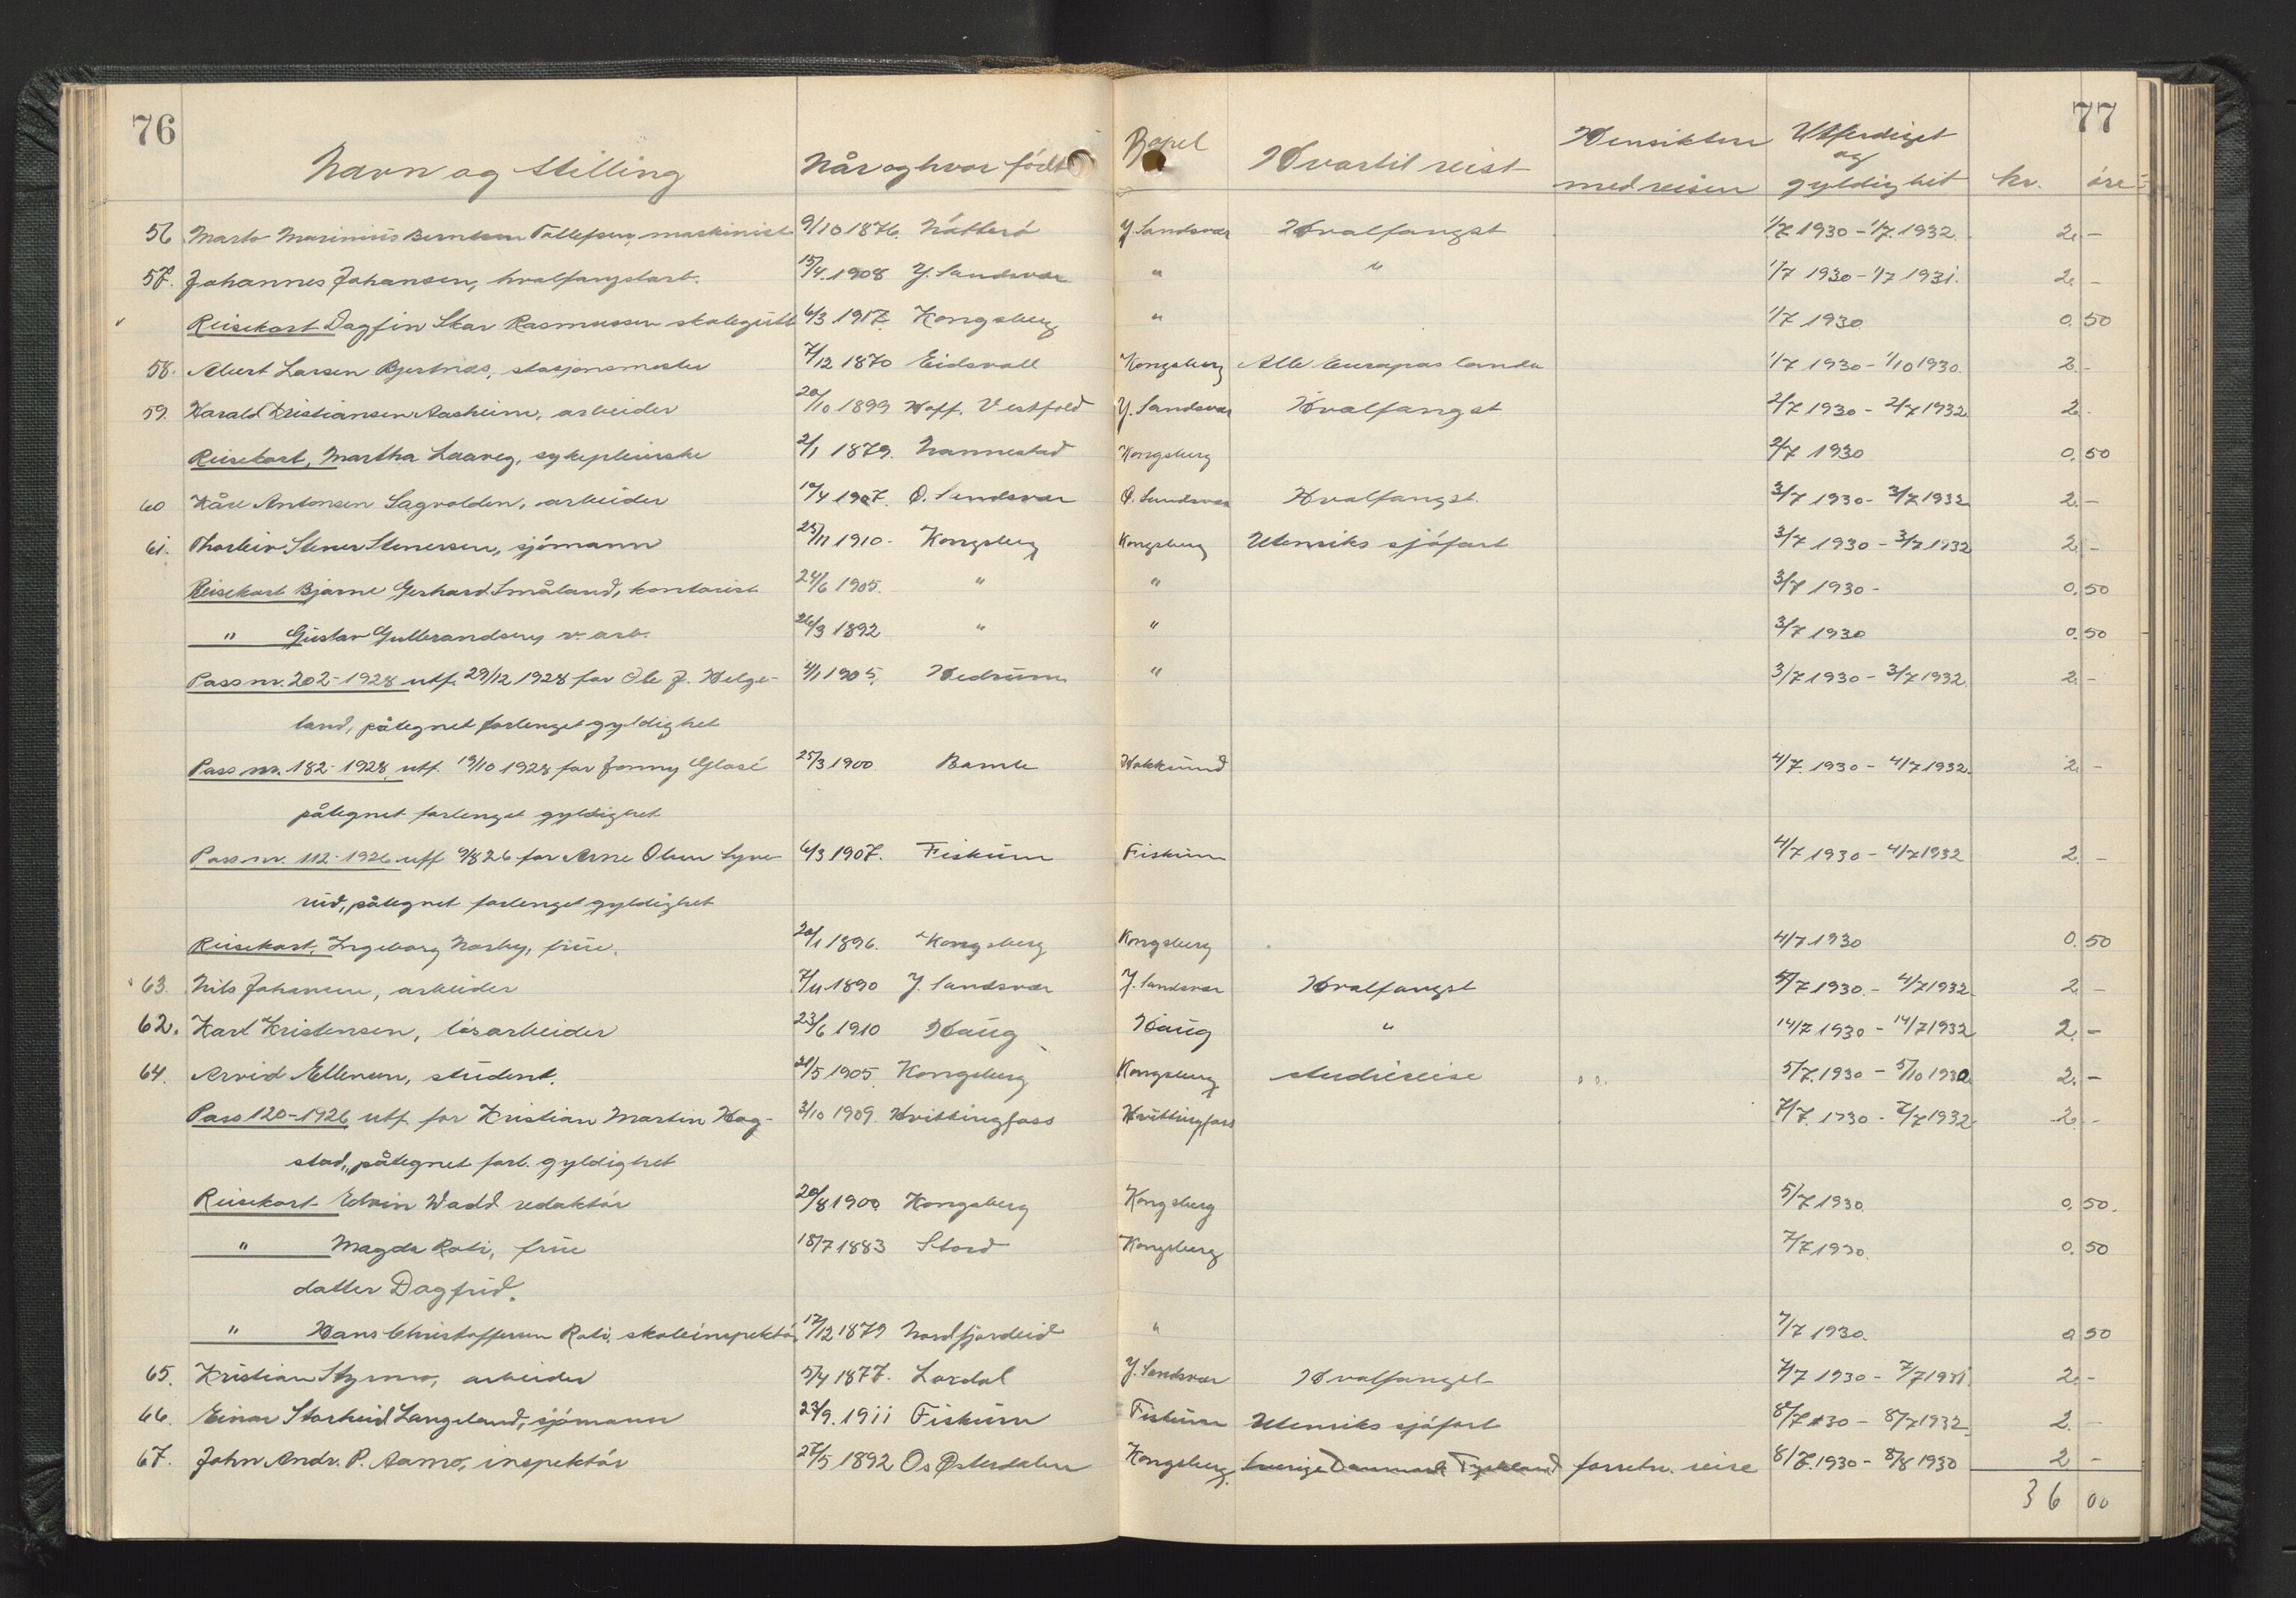 76
77
Navn og stilling Når og hvor født Bopel Hvortil reist Hensikten med reisen Utferdiget og gyldighet kr. øre
56 Marto Marinius Berntsen Tollefsen, maskinist 9/10 1876. Nøtterö Y. Sandsvær Hvalfangst 1/7 1930 - 1/7 1932. 2. -
57. Johannes Johansen, hvalfangstarb. 15/4. 1908 Y. Sandsvær " " 1/7 1930 - 1/7 1931. 2. -
Reisekort Dagfin Skar Rasmussen skolegutt 6/3 1917. Kongsberg " 1/7 1930 0. 50
58. Albert Larsen Bjertnæs, stasjonsmester 7/12 1870 Eidsvoll Kongsberg Alle Europas lande 1/7 1930 - 1/10 1930. 2. -
59. Harald Kristiansen Aasheim, arbeider 20/10 1899 Hoff. Vestfold Y. Sandsvær Hvalfangst 2/7 1930 - 2/7 1932 2. -
Reisekort, Martha Laaveg, sykepleierske 2/1 1879. Nannestad Kongsberg 2/7 1930 0. 50
60 Kåre Antonsen Sagvolden, arbeider 10/4 1907. Ø. Sandsvær Ø. Sandsvær Hvalfangst. 3/7 1930 - 3/7 1932 2. -
61. Thorleiv Stener Stenersen, sjömann 25/11 1910 - Kongsberg Kongsberg Utenriks sjöfart 3/7 1930 - 3/7 1932 2. -
Reisekort Bjarne Gerhard Småland, kontorist 24/6 1905. " " 3/7 1930 - 0. 50
" Gustav Gulbrandsen, v. arb. 26/3 1892 " " 3/7 1930 0. 50
Pass nr. 202 - 1928 utf. 29/12 1928 for Ole J. Helge- 4/1 1905. Hedrum " 3/7 1930 - 3/7 1932. 2. -
land, påtegnet forlenget gyldighet
Pass nr. 182 - 1928 utf. 19/10 1928 for Jonny Glosé 25/3 1900 Bamle Hokksund 4/7. 1930 - 4/7 1932. 2. -
påtegnet forlenget gyldighet
Pass nr. 112 - 1926 utf 9/8 26 for Arne Olsen Lyve- 6/3 1907. Fiskum Fiskum 4/7 1930 - 4/7 1932 2. -
rud, påtegnet forlenget gyldighet
Reisekort, Ingeborg Norby, frue. 20/1 1896. Kongsberg Kongsberg 4/7 1930 0. 50
63. Nils Johansen, arbeider 7/11 1890 Y. Sandsvær Y. Sandsvær Hvalfangst 5/7 1930. - 4/7 1932 2 -
62. Karl Kristensen, lösarbeider 23/6 1910 Haug Haug " 14/7 1930 - 14/7 1932 2. -
64. Arvid Ellevsen, student. 21/5 1905. Kongsberg Kongsberg studiereise 5/7. 1930 - 5/10 1930 2. -
Pass 120 - 1926 utf for Kristian Martin Hag- 3/10 1909. Hvittingfoss Hvittingfoss 7/7. 1930 - 7/7 1932 2. -
stad, påtegnet forl. gyldighet
Reisekort Edvin Wadd redaktör 20/8 1900 Kongsberg Kongsberg 5/7 1930. 0. 50.
" Magda Roti, frue 18/7 1883 Stord Kongsberg 7/7 1930. 0. 50
datter Dagfrid.
" Hans Christoffersen Roti, skoleinspektör 17/12 1879 Nordfjordeid " 7/7 1930. 0 50
65. Kristian Styrmo, arbeider 5/4 1877. Lardal Y. Sandsvær Hvalfangst 7/7 1930 - 7/7 1931. 2. -
66. Einar Storheid Langeland, sjömann 23/9. 1911 Fiskum Fiskum Utenriks sjöfart 8/7 30 - 8/7 1932. 2. -
67. John Andr. P. Aamo, inspektör 27/5 1892 Os Østerdalen Kongsberg. Sverige Danmark Tyskland forretn. reise 8/7. 1930 - 8/8 1930 2 -
36 00